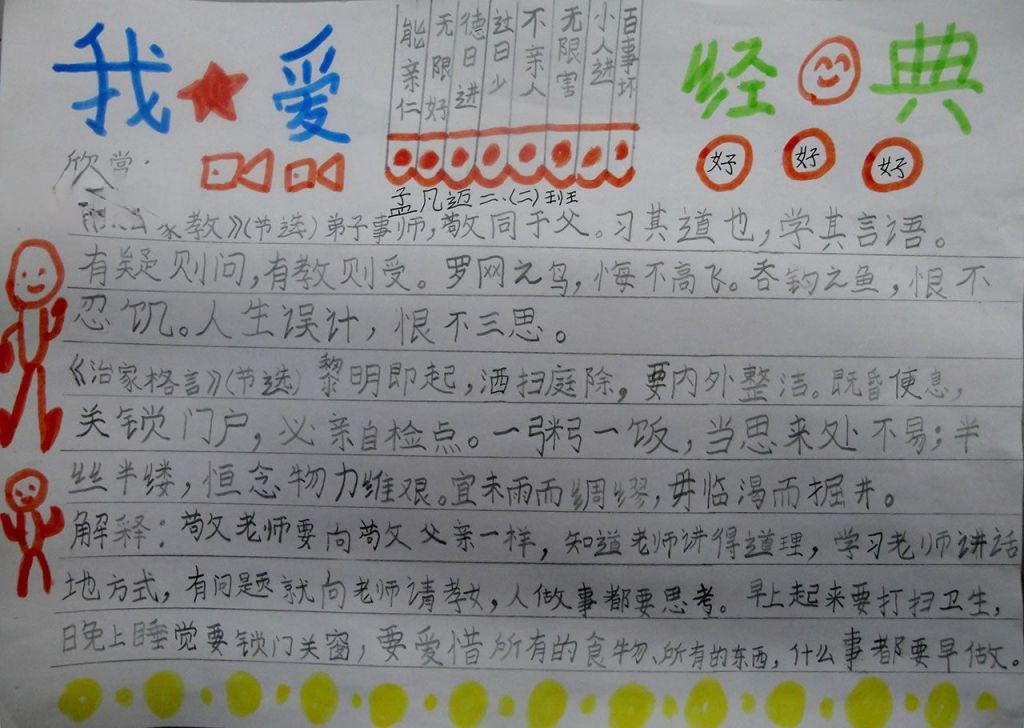 我爱
经典
能亲仁
无限好
德日进
过日少
不亲人
无限害
小人进
百事坏
好 好 好
欣赏.
孟凡迈二.(二)班
家教》(节选)弟子事师,敬同于父。习其道也,学其言语。
有疑则问,有教则受。罗网之鸟,悔不高飞。吞钩之鱼,恨不
忍饥。人生误计,恨不三思。
《治家格言》(节选) 黎明即起,洒扫庭除,要内外整洁。既昏便息,
关锁门户,必亲自检点。一粥一饭,当思来处不易;半
丝半缕,恒念物力维艰。宜未雨而绸缪,毋临渴而掘井。
解释:敬老师要向敬父亲一样,知道老师讲得道理,学习老师讲话
地方式,有问题就向老师请教,人做事都要思考。早上起来要打扫卫生,
日晚上睡觉要锁门关窗,要爱惜所有的食物、所有的东西,什么事都要早做。